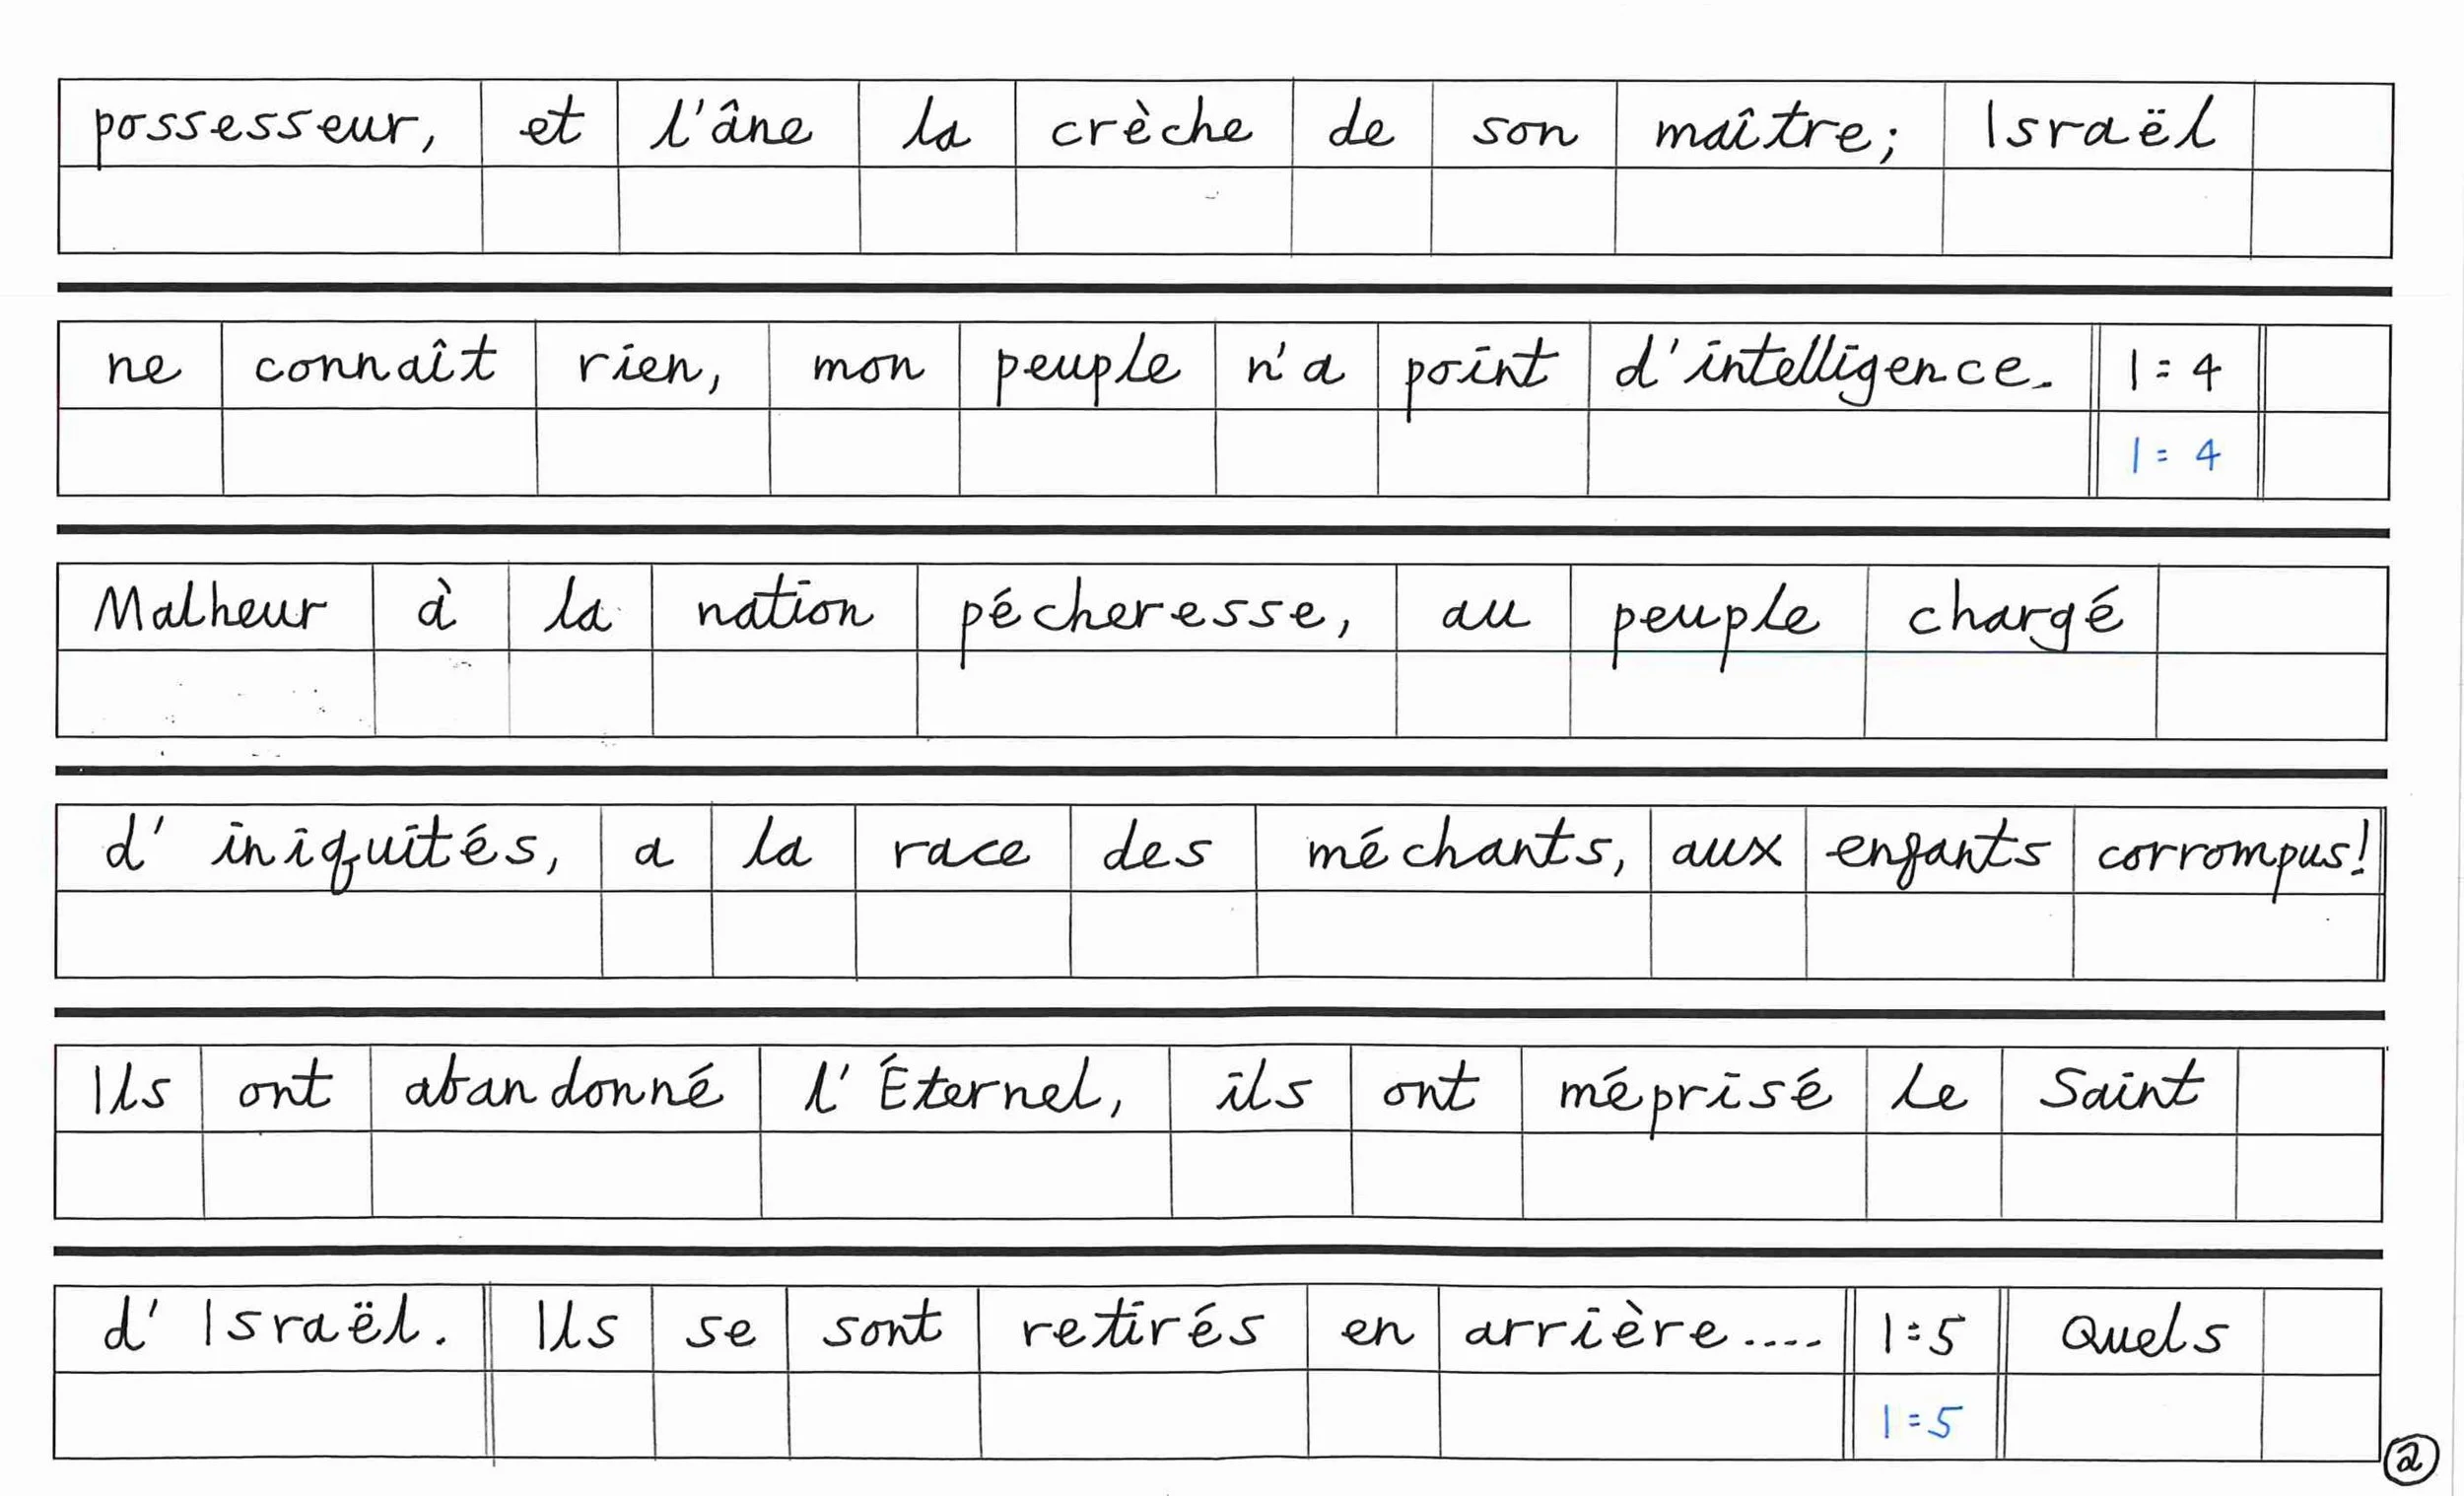 possesseur, et l'âne la crèche de son maître; Israël
ne connaît rien, mon peuple n'a point d'intelligence. 1:4
1:4
Malheur à la nation pécheresse, au peuple chargé
d'iniquités, a la race des méchants, aux enfants corrompus!
Ils ont abandonné l'Éternel, ils ont méprisé le Saint
d'Israël. Ils se sont retirés en arrière.... 1:5 Quels
1:5
2